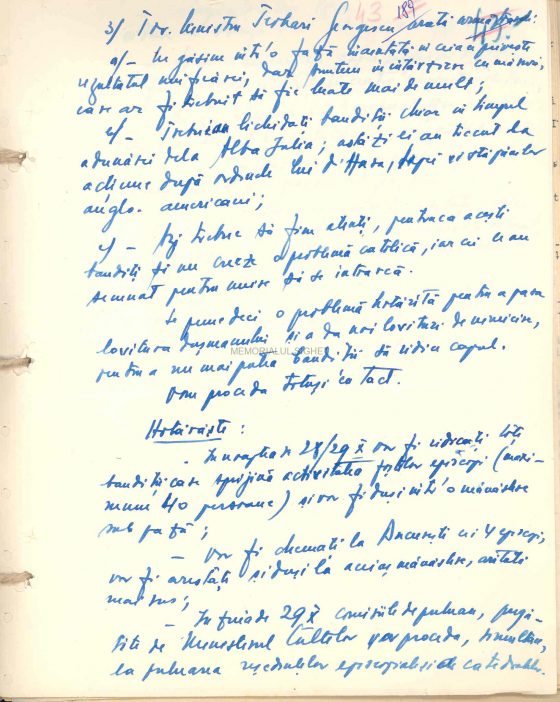 43 187
3/ Tov. Ministru Teohari Georgescu arată următoarele:
a/- Ne găsim într'o fază înaintată în ceia ce privește
rezultatul unificărei, dar suntem în întârziere cu măsuri,
care ar fi trebuit să fie luate mai de mult;
b/- Trebuiau lichidați bandiții chiar în timpul
adunărei dela Alba Iulia; astăzi ei au trecut la
acțiune după ordinele lui O'Hara, și stăpânilor
anglo-americani;
c/- Azi trebue să fim atenți, pentru ca acești
bandiți să nu creeze o problemă catolică, iar cei ce au
semnat pentru unire să se întoarcă.
Se pune deci o problemă hotărâtă pentru a para
lovitura dușmanului și a da noi lovituri de nimicire,
pentru a nu mai putea bandiții să ridice capul.
Vom proceda totuși cu tact.
MEMORIALUL SIGHET
Hotărăște:
- In noaptea de 28/29 X vor fi ridicați toți
bandiții care sprijină activitatea foștilor episcopi (maxi-
mum 40 persoane) și vor fi duși într'o mânăstire
sub pază;
- Vor fi chemați la București cei 4 episcopi,
vor fi arestați și duși la aceiaș mânăstire, arătată
mai sus;
- In ziua de 29 X comisiile de preluare, pregă-
tite de Ministerul Cultelor vor proceda, simultan,
la preluarea reședințelor episcopale și de catedrale.